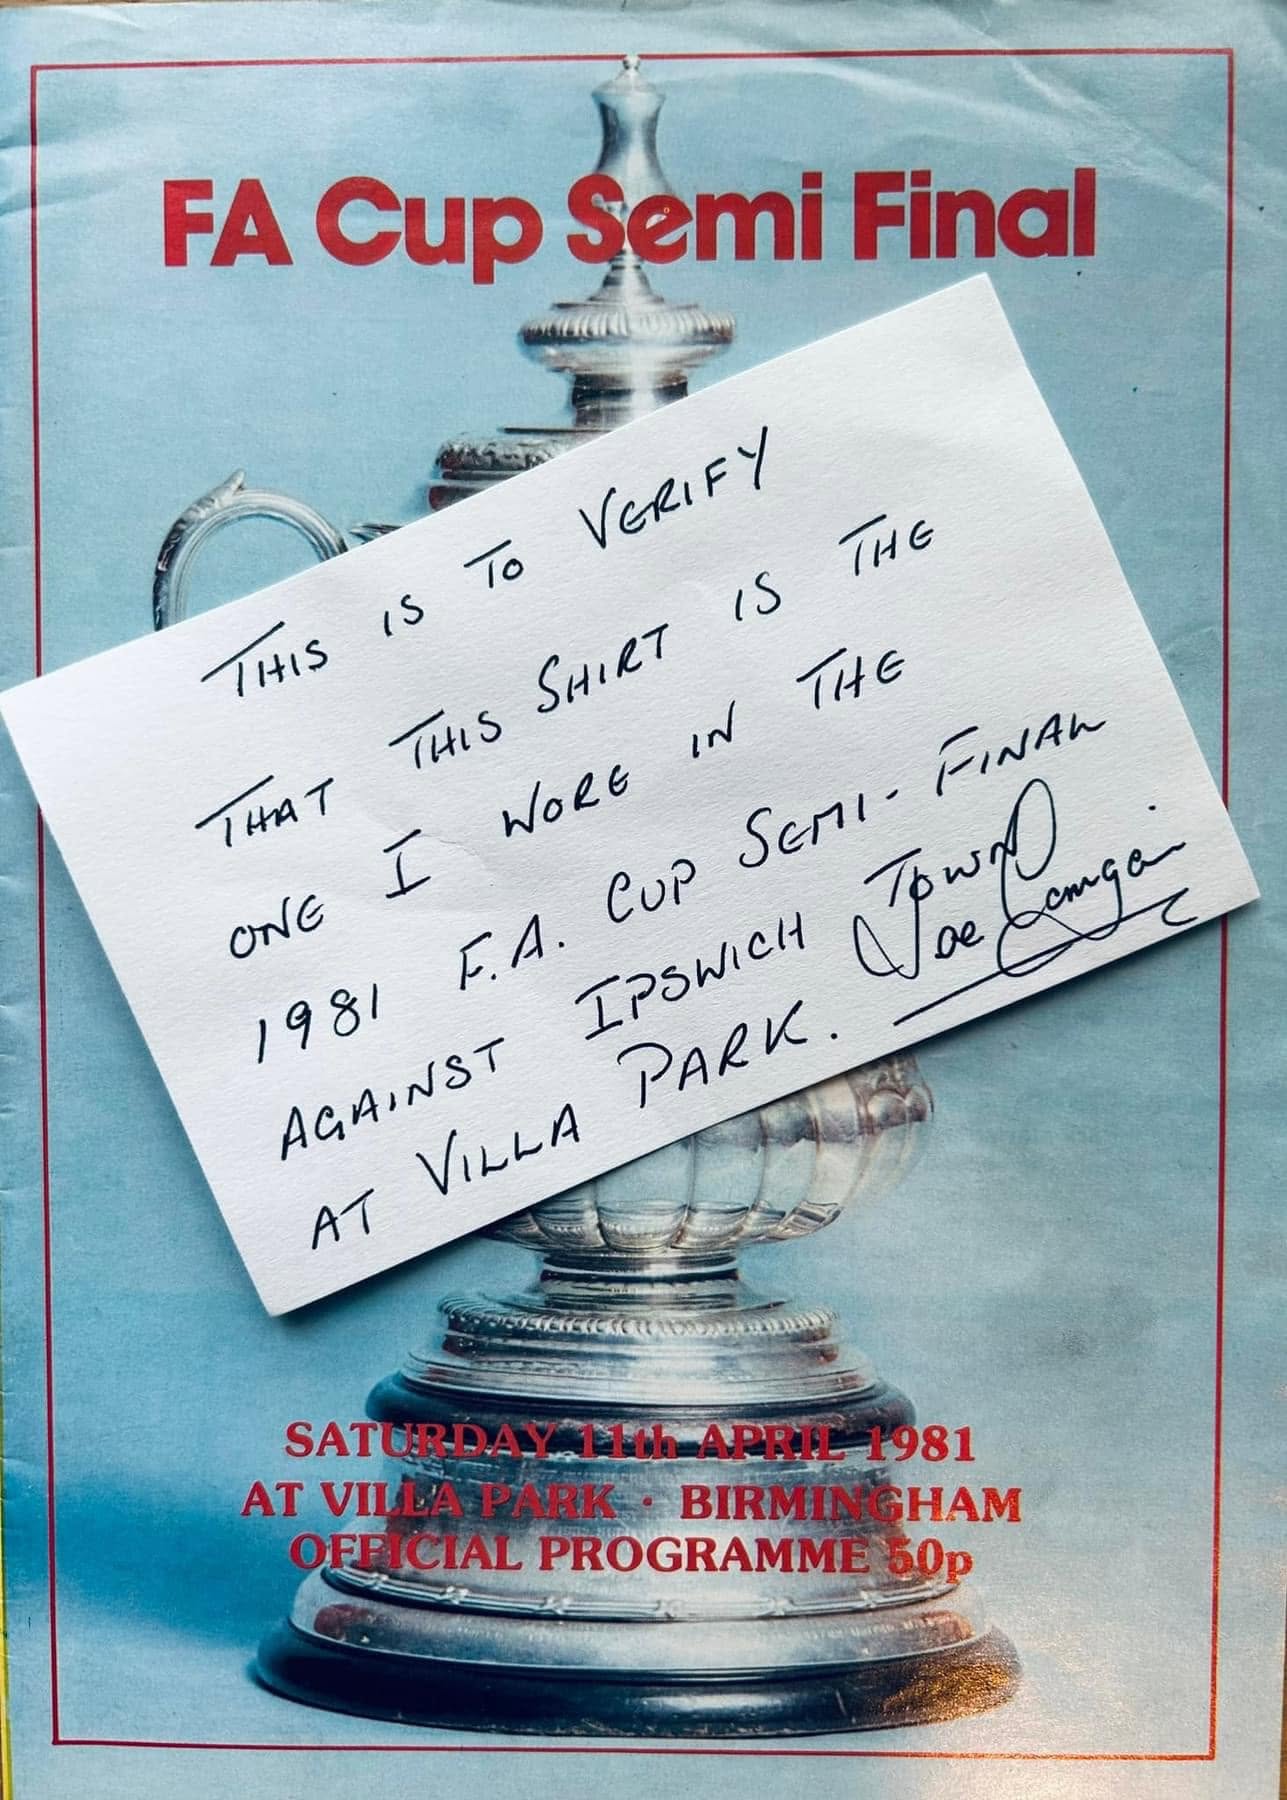 FA Cup Semi Final
THIS IS TO VERIFY
THAT THIS SHIRT IS THE
ONE I WORE IN THE
1981 F.A. CUP SEMI-FINAL
AGAINST IPSWICH TOWN
AT VILLA PARK.
Joe Corrigan
SATURDAY 11th APRIL 1981
AT VILLA PARK · BIRMINGHAM
OFFICIAL PROGRAMME 50p